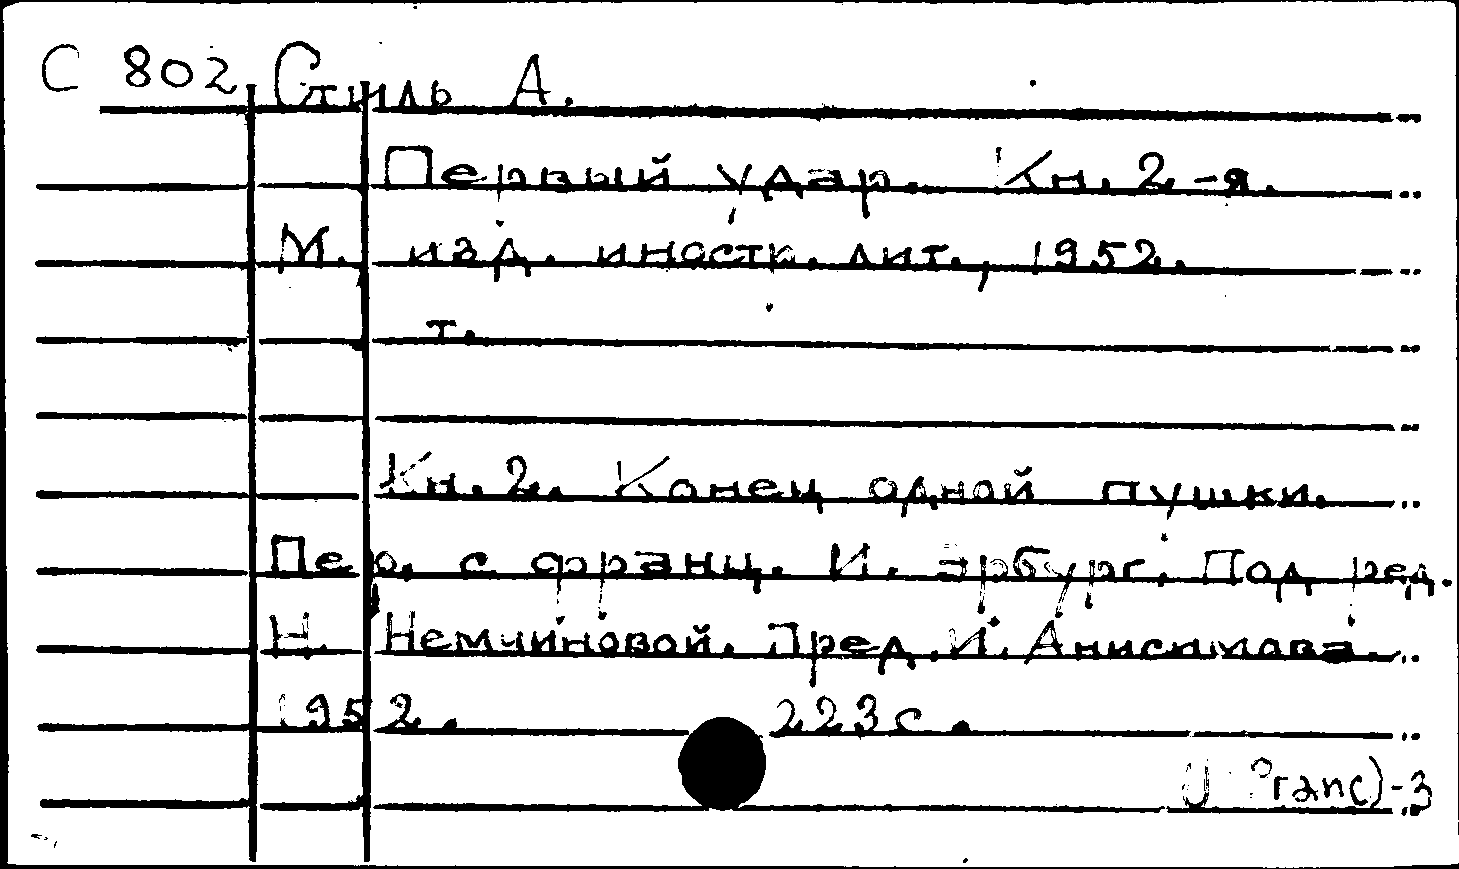 С 802 Стиль А.
Первый удар. Кн. 2-я.
М. изд. иностр. лит., 1952.
т.
Кн. 2. Конец одной пушки.
Пер. с франц. И. Эрбург. Под ред.
Н. Немчиновой. Пред. И. Анисимова.
1952. 223 с.
Franc)-3